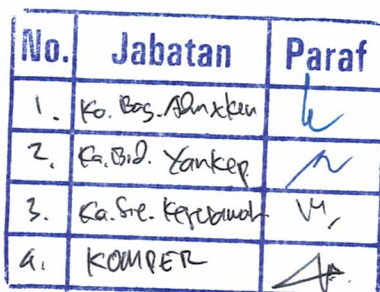 No. Jabatan Paraf
1. Ka. Bag. Admxkeu
2. Ka. Bid. Yankep
3. Ka. Sie. Keperawat
4. KOMPER